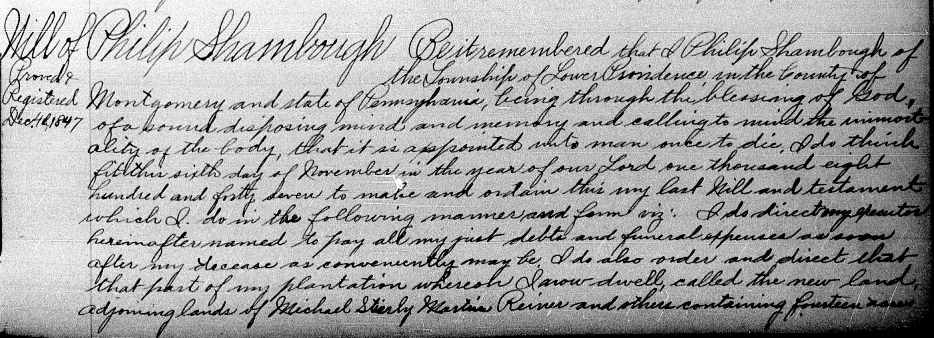 Will of Philip Shambough Be it remembered that I Philip Shambough of
Proved & the Township of Lower Providence, in the County of
Registered Montgomery and state of Pennsylvania, being through the blessing of God,
Dec. 4th, 1847 of a sound disposing mind and memory and calling to mind the immort
ality of the body, that it is appointed unto man once to die, I do think
fit this sixth day of November in the year of our Lord one thousand eight
hundred and forty seven to make and ordain this my last Will and testament
which I do in the following manner and form viz: I do direct my executor
hereinafter named to pay all my just debts and funeral expenses as soon
after my decease as conveniently may be, I do also order and direct that
that part of my plantation whereon I now dwell, called the new land,
adjoining lands of Michael Stierly Martin Reiner and others containing fourteen acres